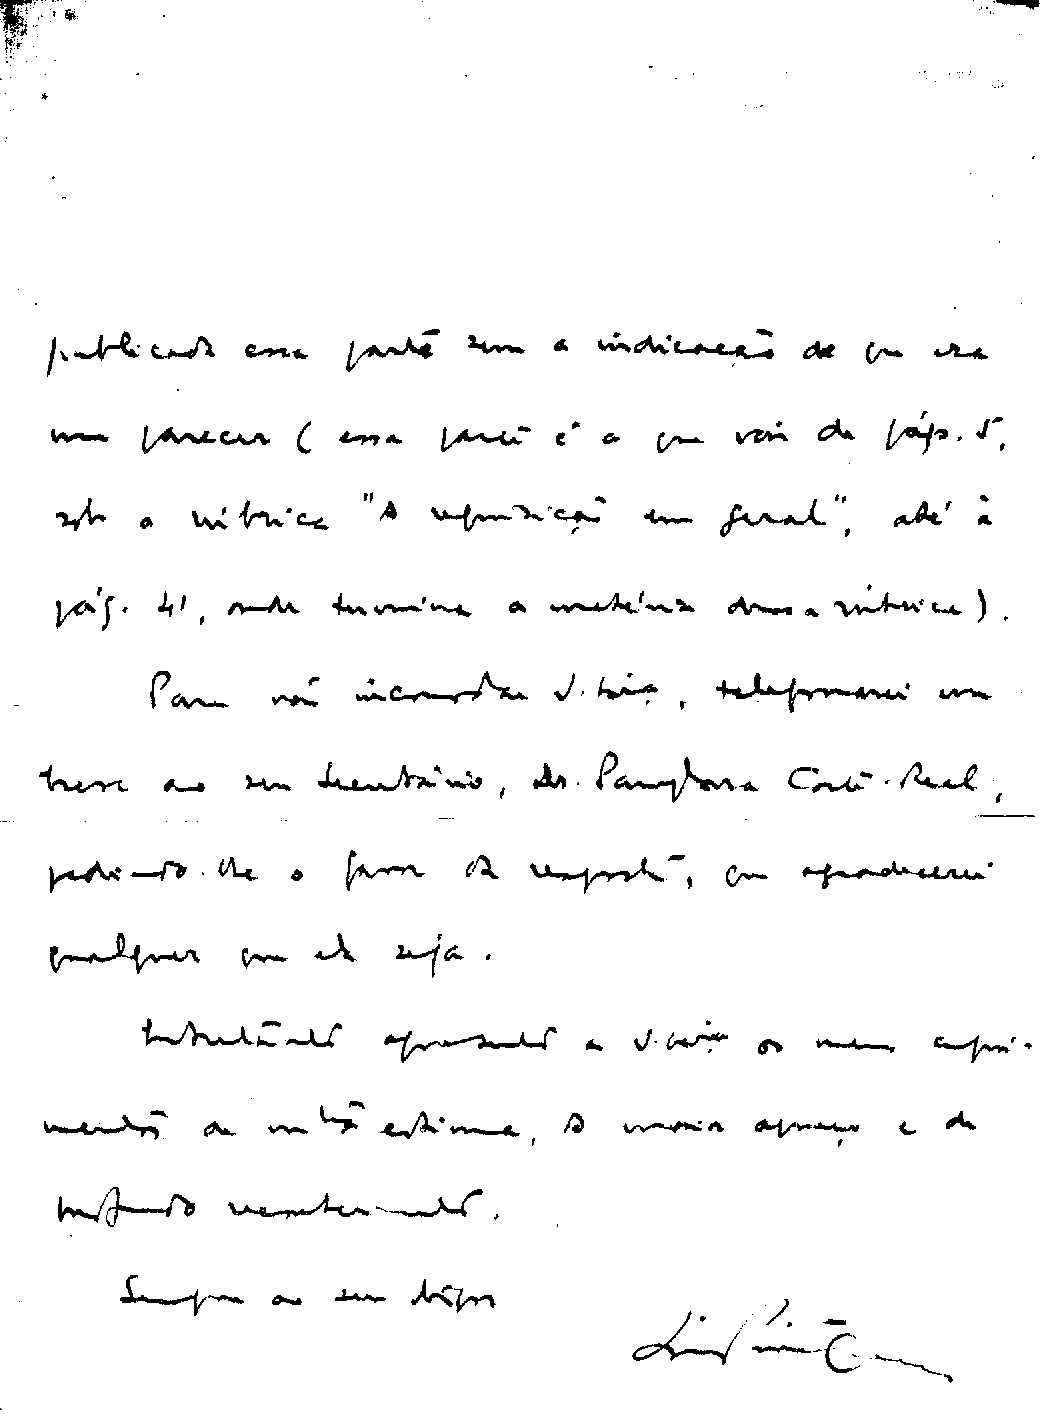 publicada essa parte sem a indicação de que era
um parecer (essa parte é a que vai de pág. 5,
sob a rúbrica "A requisição em geral", até à
pág. 41, onde termina a matéria dessa rúbrica).
Para não incomodar V. Exciª, telefonarei em
breve ao seu Secretário, Dr. Pamplona Corte-Real,
pedindo-lhe o favor da resposta, que agradecerei
qualquer que ela seja.
Entretanto apresento a V. Exciª os meus cumpri-
mentos de muita estima, a maior apreço e de
profundo reconhecimento.
Sempre ao seu dispor